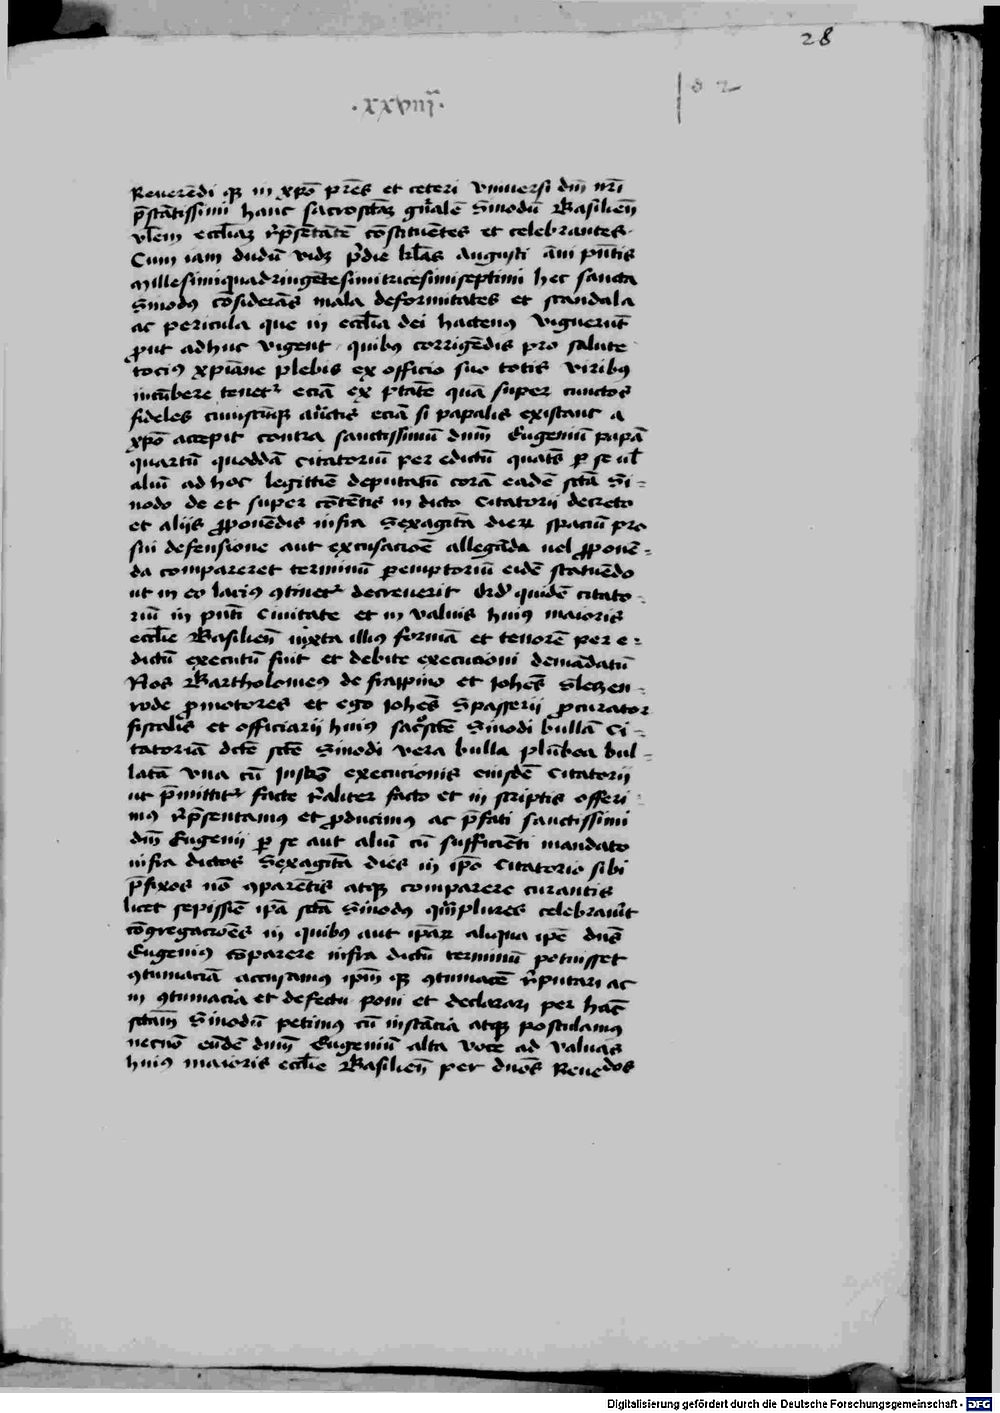 28
·xxviij·
d 2
Reuerēdi qȝ in xp̄o pr̄es et ceteri vniuersi dn̄i nr̄i
p̄stātissimi hanc sacrosctāȝ gn̄alē Sinodū Basilien̄
vl̄em eccl̄iaȝ rēp̄sētātē cōstituētes et celebrantes·
Cum iam dudū vidȝ p̄die kl̄as Augusti āni pn̄tis
Millesimiquadringētesimitricesimiseptimi hec sancta
Sinodꝰ cōsiderās mala deformitates et scandala
ac pericula que in eccl̄ia dei hactenꝰ viguerūt
ꝓut adhuc vigent quibꝰ corrigēdis pro salute
tociꝰ xp̄iane plebis ex officio suo totis viribꝰ
incūbere tenet᷑ eciā ex p̄tāte quā super cunctos
fideles cuiuscūqȝ au̅c̄tis eciā si papalis existant a
xp̄o accepit contra sanctissimū dn̄m Eugeniū papā
quartū quoddā citatoriū per edictū quatȝ ꝑ se ul̄
aliū ad hoc legittīe deputatū corā eadē sctā Si=
nodo de et super cōtētis in dicto Citatorii decreto
et aliis ꝓponēdis infra Sexagītā dieꝝ spaciū pro
sui defensione aut excusacioē allegāda uel ꝓponē=
da compareret terminū ꝑemptoriū eidē statuēdo
ut in eo lacius ꝯtinet᷑ decreuerit qd' quidē citato=
riū in pn̄ti Ciuitate et in valuis huiꝰ maioris
eccl̄ie Basilien̄ iuxta illiꝰ formā et tenorē per e=
dictū executū fuit et debite execucioni demādatū
Nos Bartholomeꝰ de frappino et Johēs Slezen=
rode ꝓmotores et ego Johēs Spasserii ꝓcurator
fiscalis et officiarii huiꝰ sac̄sctē Sinodi bullā Ci=
tatoriā dctē sctē Sinodi vera bulla plūbea bul=
latā vna cū Instr̄o execucionis eiusdē Citatorii
ut p̄mittit᷑ facte r̄aliter facto et in scriptis offeri=
mꝰ rēp̄sentamus et ꝓducimꝰ ac p̄fati sanctissimi
dn̄i Eugenii ꝑ se aut aliū cū sufficiēti mandato
infra dictos Sexagītā dies in ip̄o Citatorio sibi
p̄fixos nō ꝯparētis atqȝ comparere curantis
licet sepissīe ip̄a sctā Sinodꝰ qm̄plures celebrauīt
cōgregacioēs in quibꝰ aut ip̄aꝝ aliqua ip̄e dn̄s
Eugeniꝰ cōparere infra dictū terminū potuisset
ꝯtumaciā accusamus ip̄m qȝ ꝯtumacē rēputari ac
in ꝯtumacia et defectu poni et declarari per hāc
sctām Sinodū petimꝰ cū instācia atqȝ postulamꝰ
necnō eūdē dn̄m Eugeniū alta voce ad valuas
huiꝰ maioris eccl̄ie Basilien̄ per dn̄os Reuēdos
Digitalisierung gefördert durch die Deutsche Forschungsgemeinschaft - DFG